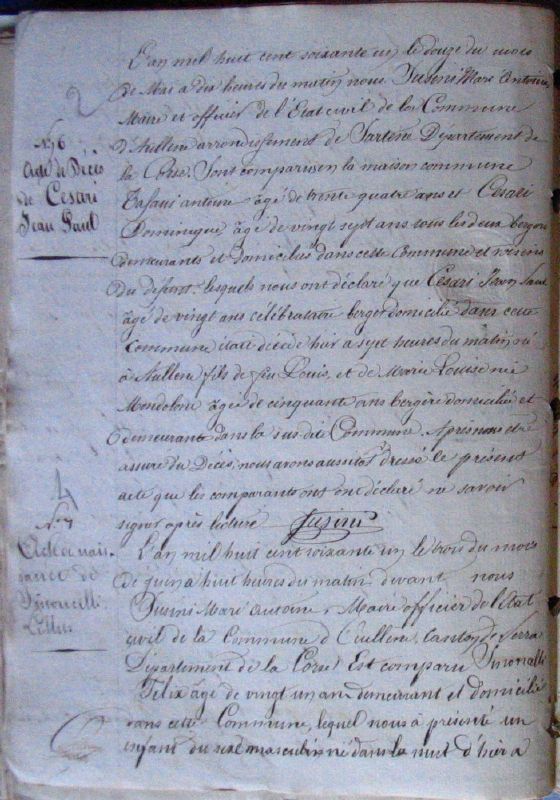 2
N.º 6
Acte de Décès
de Cesari
Jean Paul
L'an mil huit cent soixante un le douze du mois
de Mai a dix heures du matin nous Susini Marc Antoine
Maire et officier de l'Etat civil de la Commune
d'Aullene arrondissement de Sartene Département de
la Corse. Sont comparus en la maison commune
antoine âgé de trente quatre ans et Cesari
Dominique âgé de vingt sept ans tous les deux bergers
demeurants et domiciliés dans cette Commune et voisins
du défunt, lesquels nous ont déclaré que Cesari Jean Paul
âgé de vingt ans célibataire berger domicilié dans cette
Commune était décédé hier a sept heures du matin, né
à Aullene fils de feu Louis, et de Marie Louise née
Mondoloni âgée de cinquante ans bergère domiciliée et
demeurant dans la sus dite Commune. Après nous être
assuré du Décès, nous avons aussitôt dressé le présent
acte que les comparants ont déclaré ne savoir
signer après lecture Susini
4
N.º 7
Acte de nais
sance de
L'an mil huit cent soixante un le trois du mois
de juin a huit heures du matin devant nous
Susini Marc Antoine, Maire officier de l'Etat
civil de la Commune d'Aullene, Canton de Serra
Département de la Corse Est comparu
Felix âgé de vingt un ans demeurant et domicilié
dans cette Commune, lequel nous a présenté un
enfant du sexe masculin né dans la nuit d'hier a